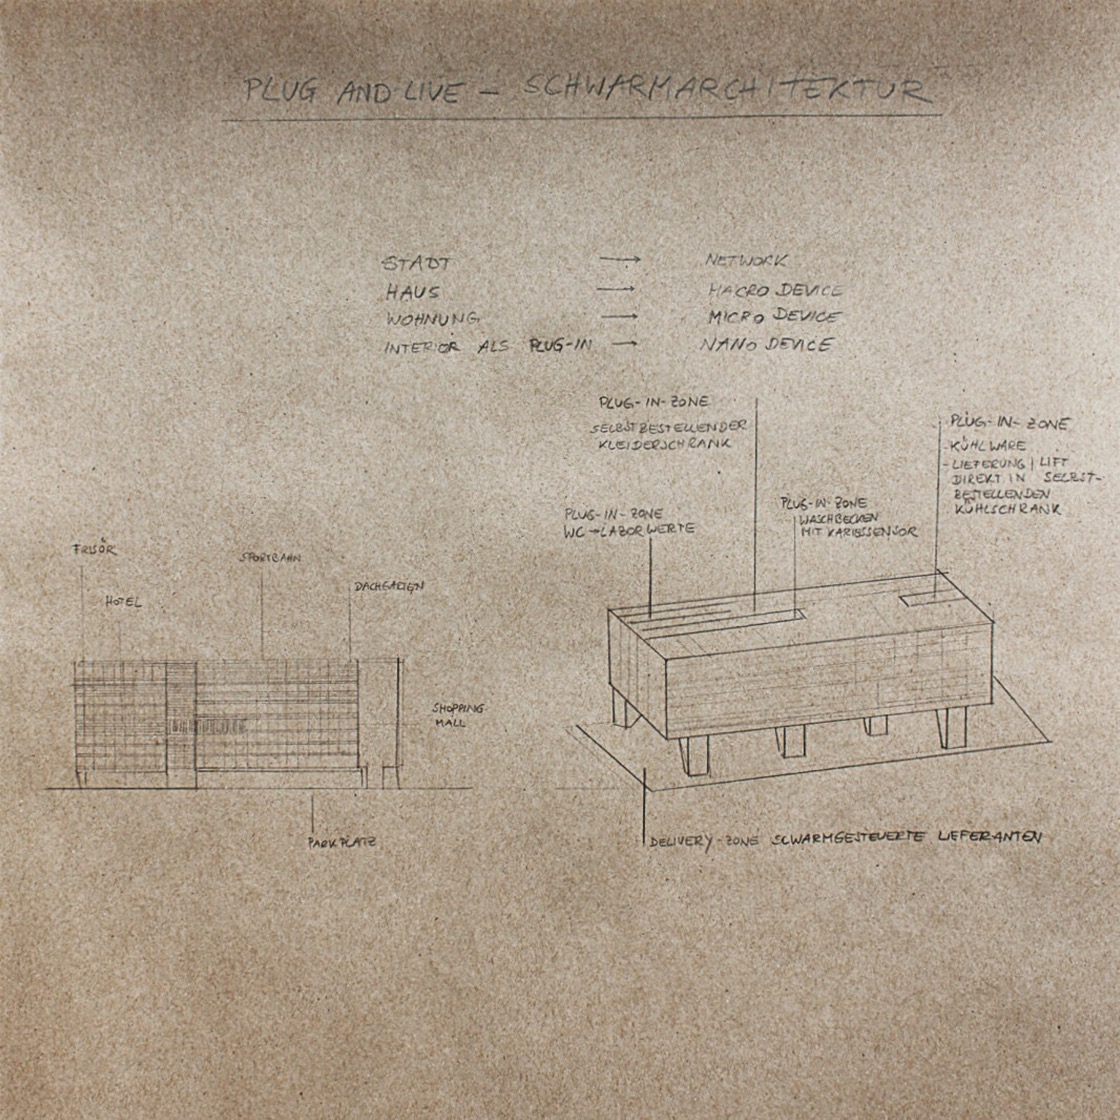 PLUG AND LIVE – SCHWARMARCHITEKTUR
STADT → NETWORK
HAUS → MACRO DEVICE
WOHNUNG → MICRO DEVICE
INTERIOR ALS PLUG-IN → NANO DEVICE
PLUG-IN-ZONE
SELBSTBESTELLENDER
KLEIDERSCHRANK
PLUG-IN-ZONE
- KÜHLWARE
- LIEFERUNG | LIFT
DIREKT IN SELBST-
BESTELLENDEN
KÜHLSCHRANK
PLUG-IN-ZONE
WC → LABORWERTE
PLUG-IN-ZONE
WASCHBECKEN
MIT KARIESSENSOR
FRISÖR
HOTEL
SPORTBAHN
DACHGARTEN
SHOPPING
MALL
PARKPLATZ
DELIVERY-ZONE SCWARMGESTEUERTE LIEFERANTEN